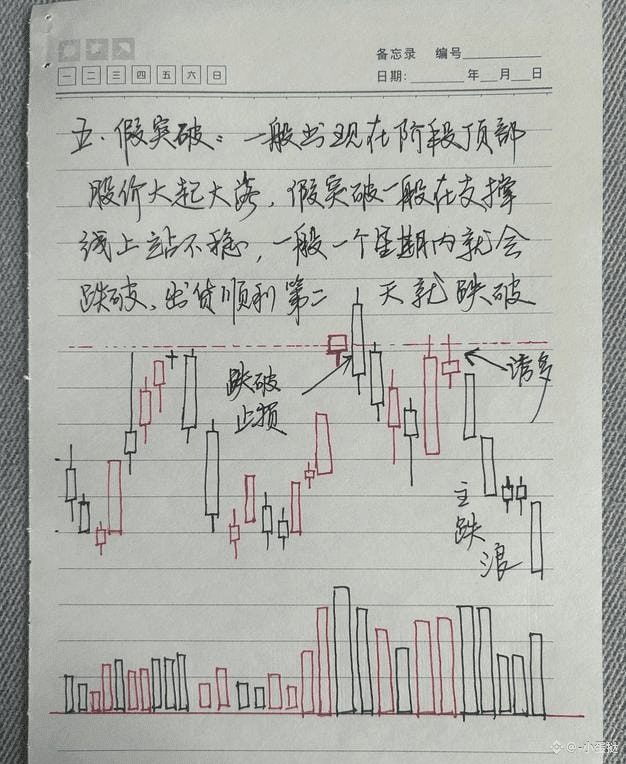 备忘录 编号
一 二 三 四 五 六 日
日期: 年 月 日
五.假突破:一般出现在阶段顶部
股价大起大落,假突破一般在支撑
线上站不稳,一般一个星期内就会
跌破、出货顺利第二 天就跌破
跌破
止损
诱多
主
跌
浪
@-小蛋挞